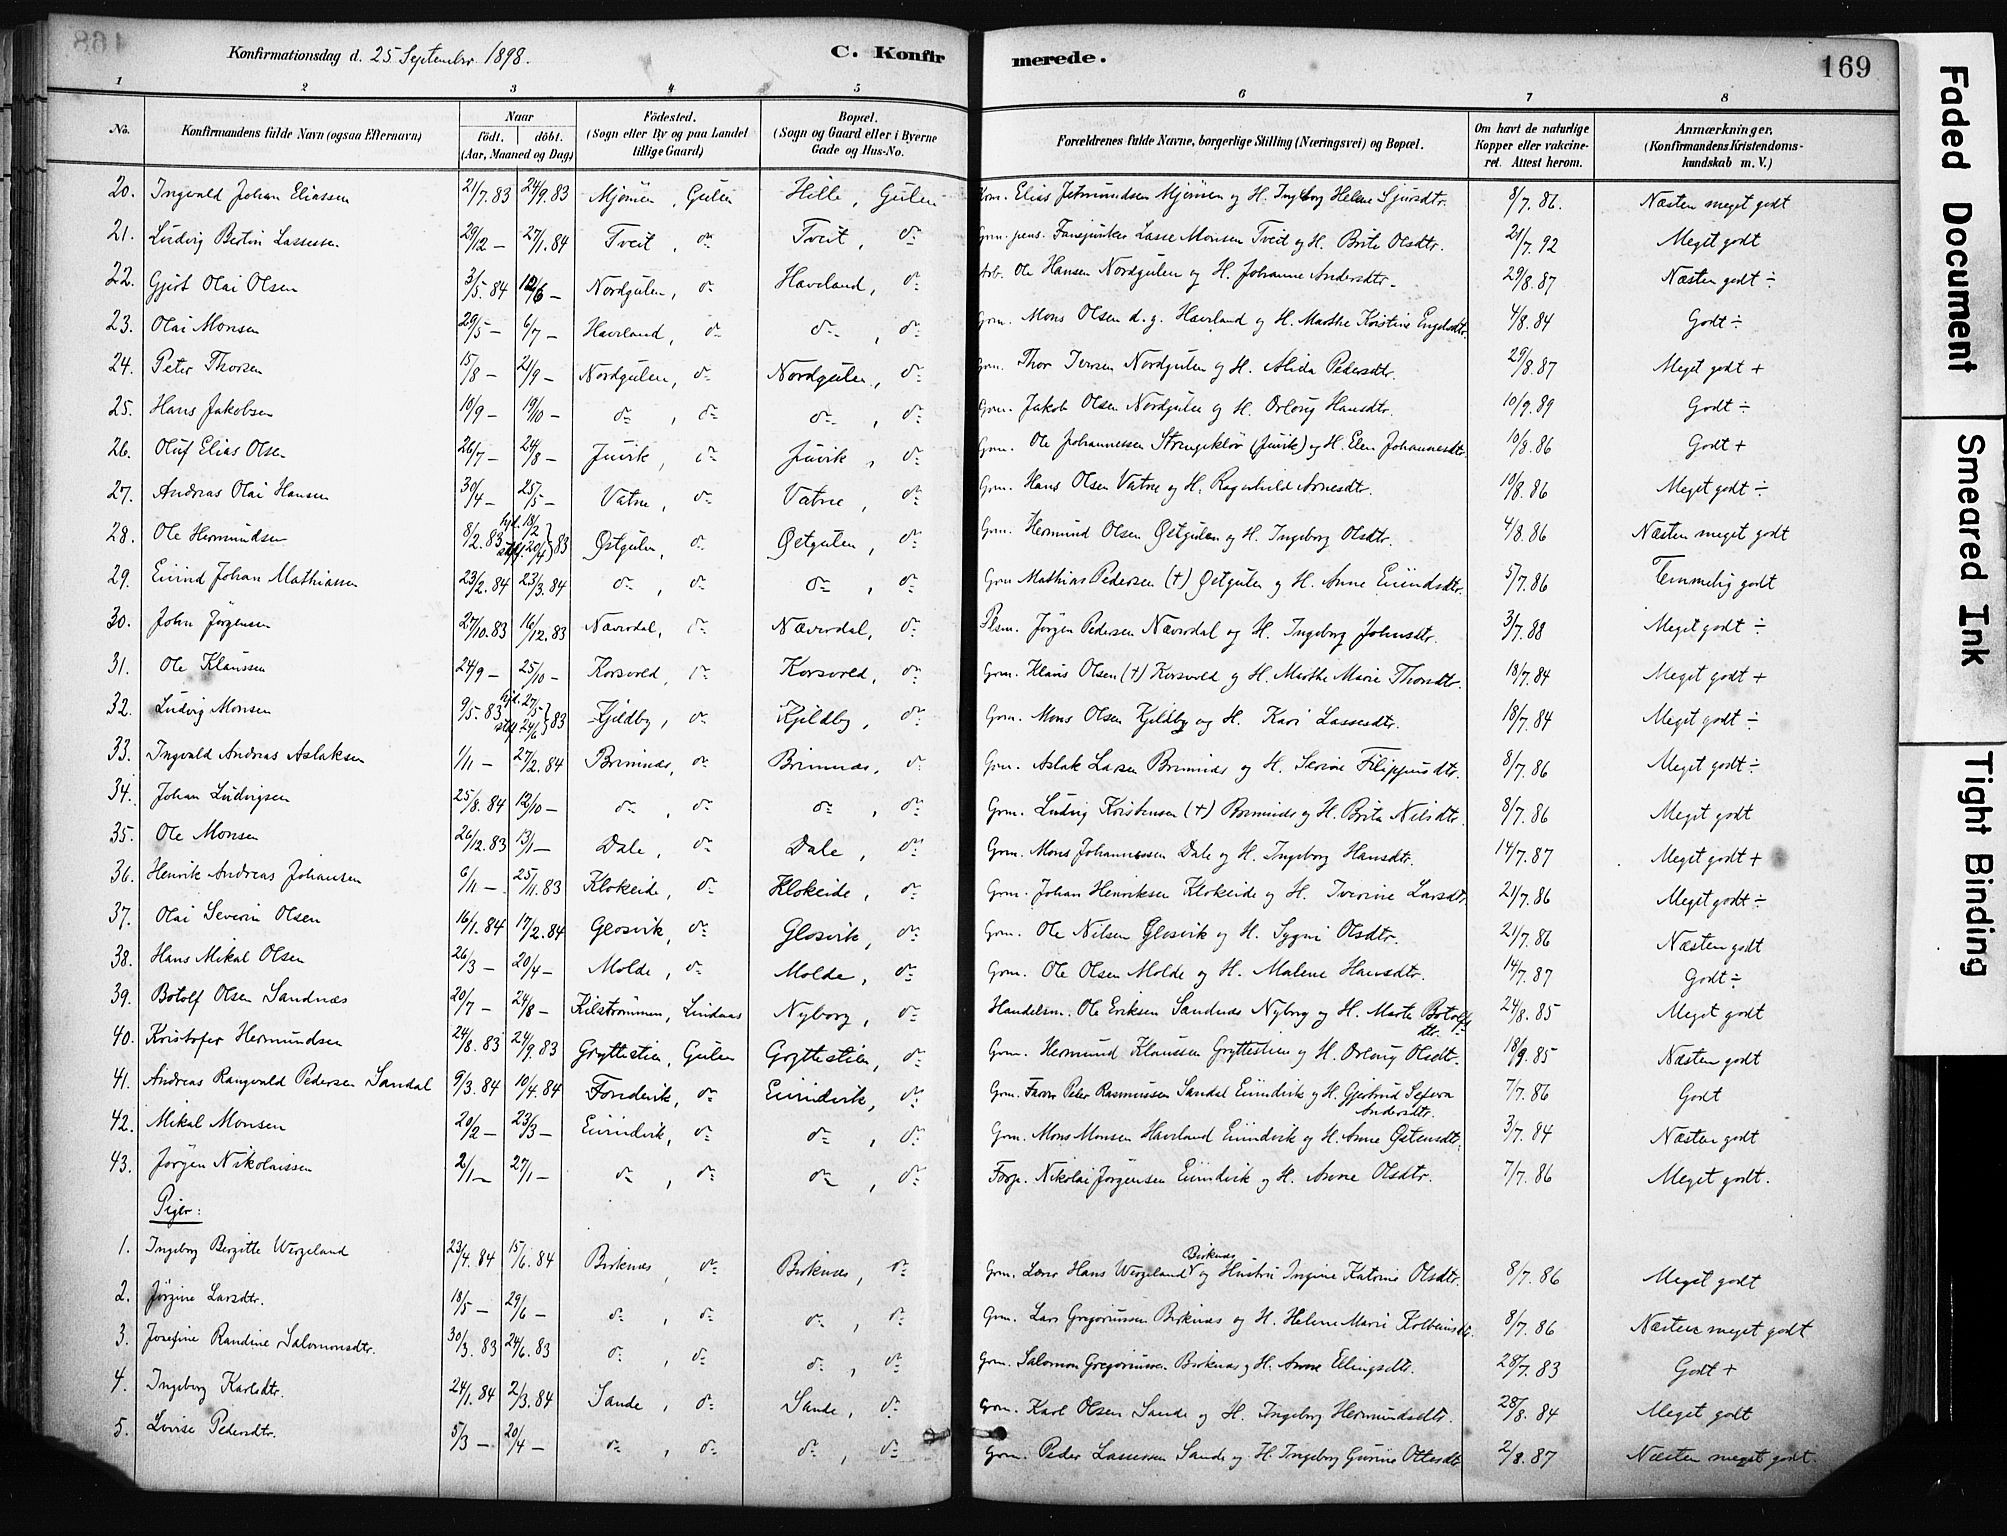 Konfirmationsdag d. 25 September 1898. C. Konfirmerede. 169
1 2 3 4 5 6 7 8
No. Konfirmandens fulde Navn (ogsaa Efternavn) Naar født. døbt. (Aar, Maaned og Dag) Fødested. (Sogn eller By og paa Landet tillige Gaard) Bopæl. (Sogn og Gaard eller i Byerne Gade og Hus-No. Forældrenes fulde Navne, borgerlige Stilling (Næringsvei) og Bopæl. Om havt de naturlige Kopper eller vakcineret. Attest herom. Anmærkninger. (Konfirmandens Kristendomskundskab m. V.)
20. Ingvald Johan Eliassen 21/7.83 24/9.83 Mjømen, Gulen Hille, Gulen Grm. Elias Jetmundsen Mjømen og H. Ingeborg Helene Sjursdtr. 8/7.86. Næsten meget godt
21. Ludvig Bertin Lassessen 29/12 — 27/1.84 Tveit, do Tveit, do Grm. pens. Fanejunker Lasse Monsen Tveit og H. Brite Olsdtr. 21/7.92 Meget godt
22. Gjert Olai Olsen 3/5.84 12/6 — Nordgulen, do Haveland, do Arb. Ole Hansen Nordgulen og H. Johanne Andersdtr. 29/8.87 Næsten godt ÷
23. Olai Monsen 29/5 — 6/7 — Haveland, do do, do Grm. Mons Olsen d. y. Haveland og H. Marthe Kristine Engelsdtr. 4/8.84 Godt ÷
24. Peter Thorsen 15/8 — 21/9 — Nordgulen, do Nordgulen, do Grm. Thor Iversen Nordgulen og H. Alida Pedersdtr. 29/8.87 Meget godt +
25. Hans Jakobsen 10/9 — 19/10 — do, do do, do Grm. Jakob Olsen Nordgulen og H. Orloug Hansdtr. 10/9.89 Godt ÷
26. Oluf Elias Olsen 26/7 — 24/8 — Juvik, do Juvik, do Grm. Ole Johannessen (Juvik) og H. Elen Johannesdtr. 10/8.86 Godt +
27. Andreas Olai Hansen 30/4 — 25/5 — Vatne, do Vatne, do Grm. Hans Olsen Vatne og H. Ragnhild Arnesdtr. 10/8.86 Meget godt ÷
28. Ole Hermundsen 8/2.83 hjd. 18/2 stf. 20/4 } 83 Østgulen, do Østgulen, do Grm. Hermund Olsen Østgulen og H. Ingeborg Olsdtr. 4/8.86 Næsten meget godt
29. Eivind Johan Mathiassen 23/2.84 23/3.84 do, do do, do Grm. Mathias Pedersen (+) Østgulen og H. Anne Eivindsdtr. 5/7.86 Temmelig godt
30. John Jørgensen 27/10.83 16/12.83 Næverdal, do Næverdal, do Plsm. Jørgen Pedersen Næverdal og H. Ingeborg Johnsdtr. 3/7.88 Meget godt ÷
31. Ole Klaussen 24/9 — 25/10 — Korsvold, do Korsvold, do Grm. Klaus Olsen (+) Korsvold og H. Marthe Marie Thorsdtr. 18/7.84 Meget godt +
32. Ludvig Monsen 9/5.83 hjd. 27/5 stf. 24/6 } 83 Kjeldby, do Kjeldby, do Grm. Mons Olsen Kjeldby og H. Kari Lassesdtr. 18/7.84 Meget godt ÷
33. Ingvald Andreas Aslaksen 1/11 — 27/2.84 Brimnæs, do Brimnæs, do Grm. Aslak Larsen Brimnæs og H. Serine Filippusdtr. 8/7.86 Meget godt ÷
34. Johan Ludvigsen 25/8.84 12/10 — do, do do, do Grm. Ludvig Kristensen (+) Brimnæs og H. Brita Nilsdtr. 8/7.86 Meget godt
35. Ole Monsen 26/12.83 13/1 — Dale, do Dale, do Grm. Mons Johannessen Dale og H. Ingeborg Hansdtr. 14/7.87 Meget godt +
36. Henrik Andreas Johansen 6/11 — 25/11.83 Klokeide, do Klokeide, do Grm. Johan Henriksen Klokeide og H. Iverine Larsdtr. 21/7.86 Meget godt ÷
37. Olai Severin Olsen 16/1.84 17/2.84 Glosvik, do Glosvik, do Grm. Ole Nilsen Glosvik og H. Sygni Olsdtr. 21/7.86 Næsten godt
38. Hans Mikal Olsen 26/3 — 20/4 — Molde, do Molde, do Grm. Ole Olsen Molde og H. Malene Hansdtr. 14/7.87 Godt ÷
39. Botolf Olsen Sandnæs 20/7 — 24/8 — Kilstrømmen, Lindaas Nyborg, do Handelsm. Ole Eriksen Sandnæs Nyborg og H. Marte Botolfsdtr. 24/8.85 Meget godt
40. Kristofer Hermundsen 24/8.83 24/9.83 Gryttestien, Gulen Gryttestien, do Grm. Hermund Klaussen Gryttestien og H. Orloug Olsdtr. 18/9.85 Næsten godt
41. Andreas Rangvald Pedersen Sandal 9/3.84 10/4.84 do Eivindvik, do Grm. Farver Peter Rasmussen Sandal Eivindvik og H. Gjertrud Andersdtr. 7/7.86 Godt
42. Mikal Monsen 20/2 — 23/3 — Eivindvik, do do, do Grm. Mons Monsen Haveland Eivindvik og H. Anne Østensdtr. 3/7.84 Næsten godt
43. Jørgen Nikolaissen 2/1 — 27/1 — do, do do, do Forp. Nikolai Jørgensen Eivindvik og H. Anne Olsdtr. 7/7.86 Meget godt.
Piger:
1. Ingeborg Bergitte Wergeland 23/4.84 15/6.84 Birknæs, do Birknæs, do Grm. Lærer Hans Wergeland Birknæs og Hustru Ingine Katrine Olsdtr. 8/7.86 Meget godt
2. Jørgine Larsdtr. 18/5 — 29/6 — do, do do, do Grm. Lars Gregoriussen Birknæs og H. Helene Marie Kolbeinsdtr. 8/7.86 Næsten meget godt
3. Josefine Randine Salomonsdtr. 30/3.83 24/6.83 do, do do, do Grm. Salomon Gregoriussen Birknæs og H. Anne Ellingsdtr. 28/7.83 Godt +
4. Ingeborg Karlsdtr. 24/1.84 2/3.84 Sande, do Sande, do Grm. Karl Olsen Sande og H. Ingeborg Hermundsdtr. 28/8.84 Meget godt
5. Lovise Pedersdtr. 5/3 — 20/4 — do, do do, do Grm. Peder Lassessen Sande og H. Ingeborg Gurine Ottesdtr. 2/8.87 Næsten meget godt.
Faded Document
Smeared Ink
Tight Binding